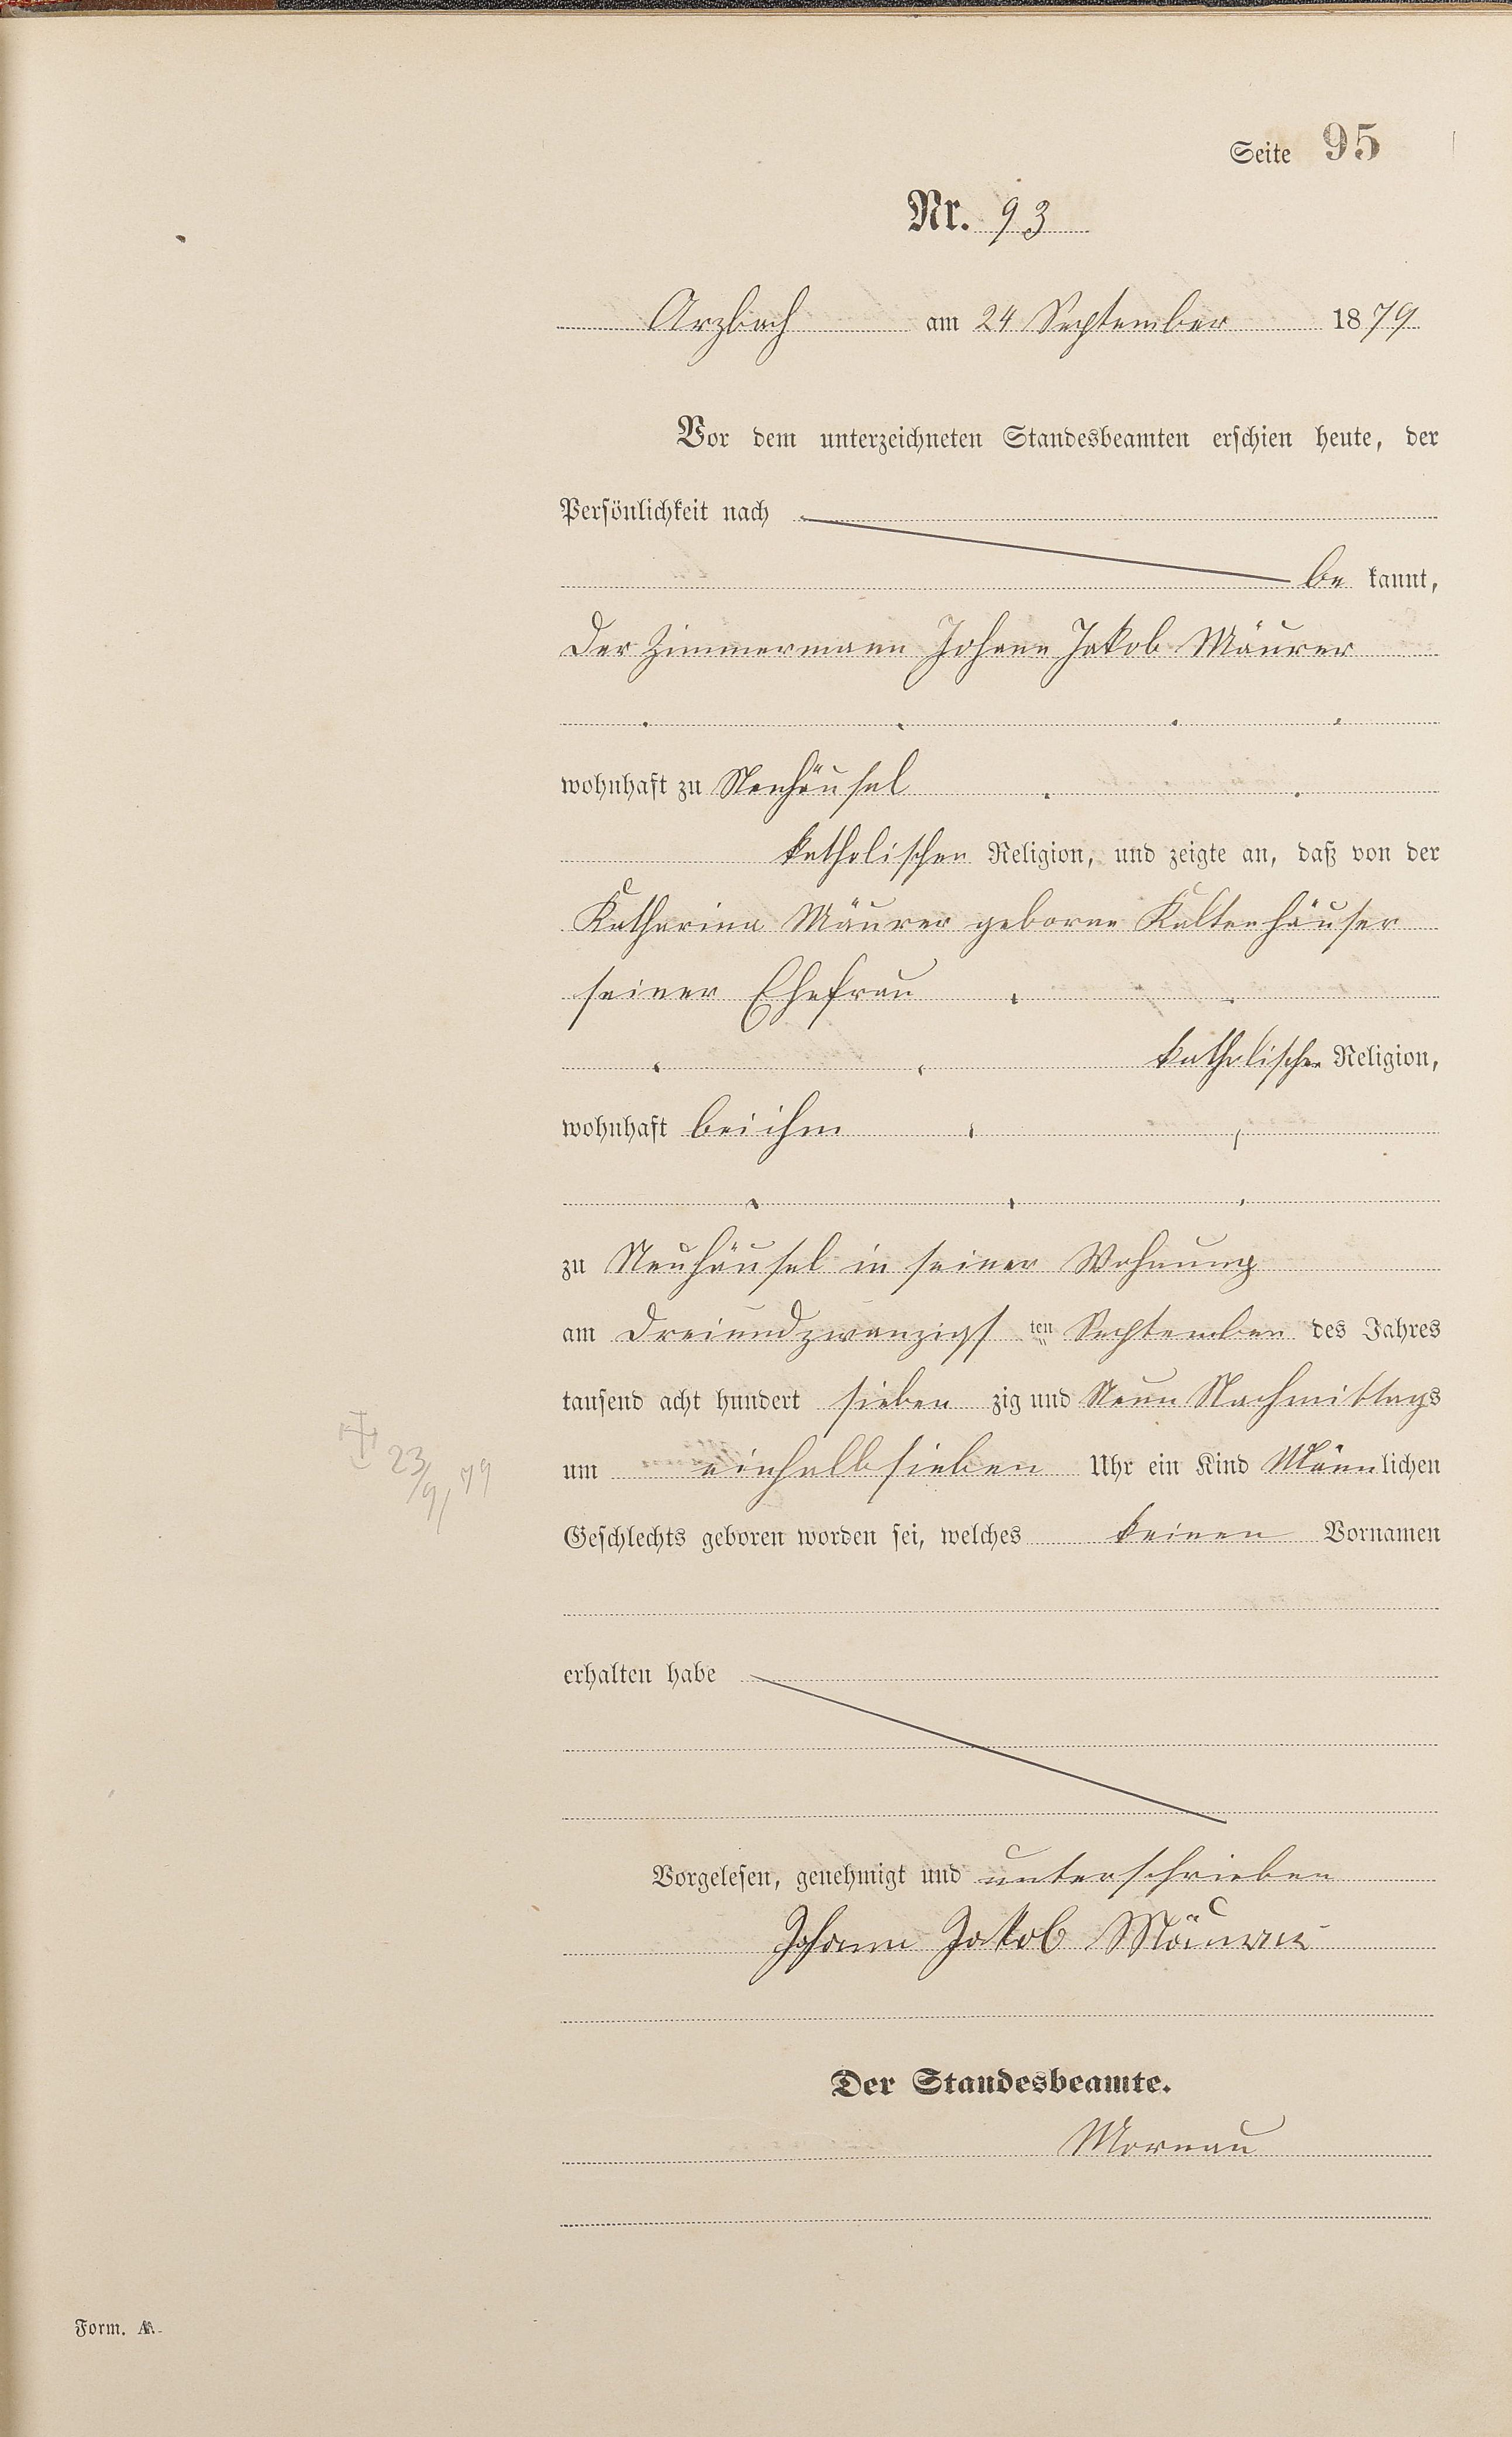 Seite 95
Nr. 93
Arzbach am 24 September 1879
Vor dem unterzeichneten Standesbeamten erschien heute, der
Persönlichkeit nach
be kannt,
der Zimmermann Johann Jakob Mäurer
wohnhaft zu Neuhäusel
katholischer Religion, und zeigte an, daß von der
Katharina Mäurer geborne Kaltenhäuser
seiner Ehefrau
katholischer Religion,
wohnhaft bei ihm
zu Neuhäusel in seiner Wohnung
am dreiundzwanzigsten September des Jahres
tausend acht hundert sieben zig und Neun Nachmittags
um einhalbsieben Uhr ein Kind Männlichen
✝ 23/9/79
Geschlechts geboren worden sei, welches keinen Vornamen
erhalten habe
Vorgelesen, genehmigt und unterschrieben
Johann Jakob Mäurer
Der Standesbeamte.
Mornau
Form. A.